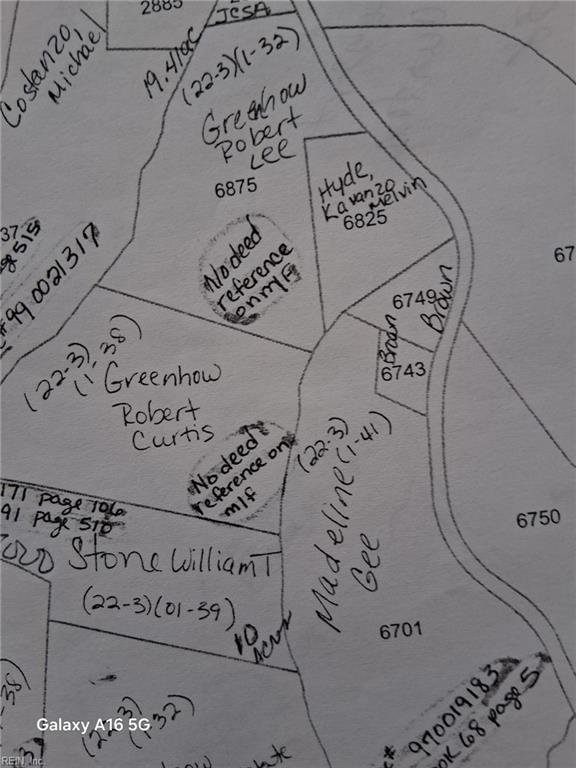 2885
JCSA
Costanzo,
Michael
19.41ac
(22-3)(1-32)
Greenhow
Robert
Lee
6875
Hyde,
Kavanzo
Melvin
6825
37
page 515
#990021317
No deed
reference
on m/f
67
6749
Brown
Brown
6743
(22-3)
(1-38)
Greenhow
Robert
Curtis
No deed
reference on
m/f
(22-3)
(1-41)
Madeline
Gee
171 page 106
91 page 510
Stone William T
(22-3)(01-39)
10
Acres
6750
6701
-38)
(22-3)
(1-32)
# 970019183
OK 68 page 5
Galaxy A16 5G
REIN, Inc.